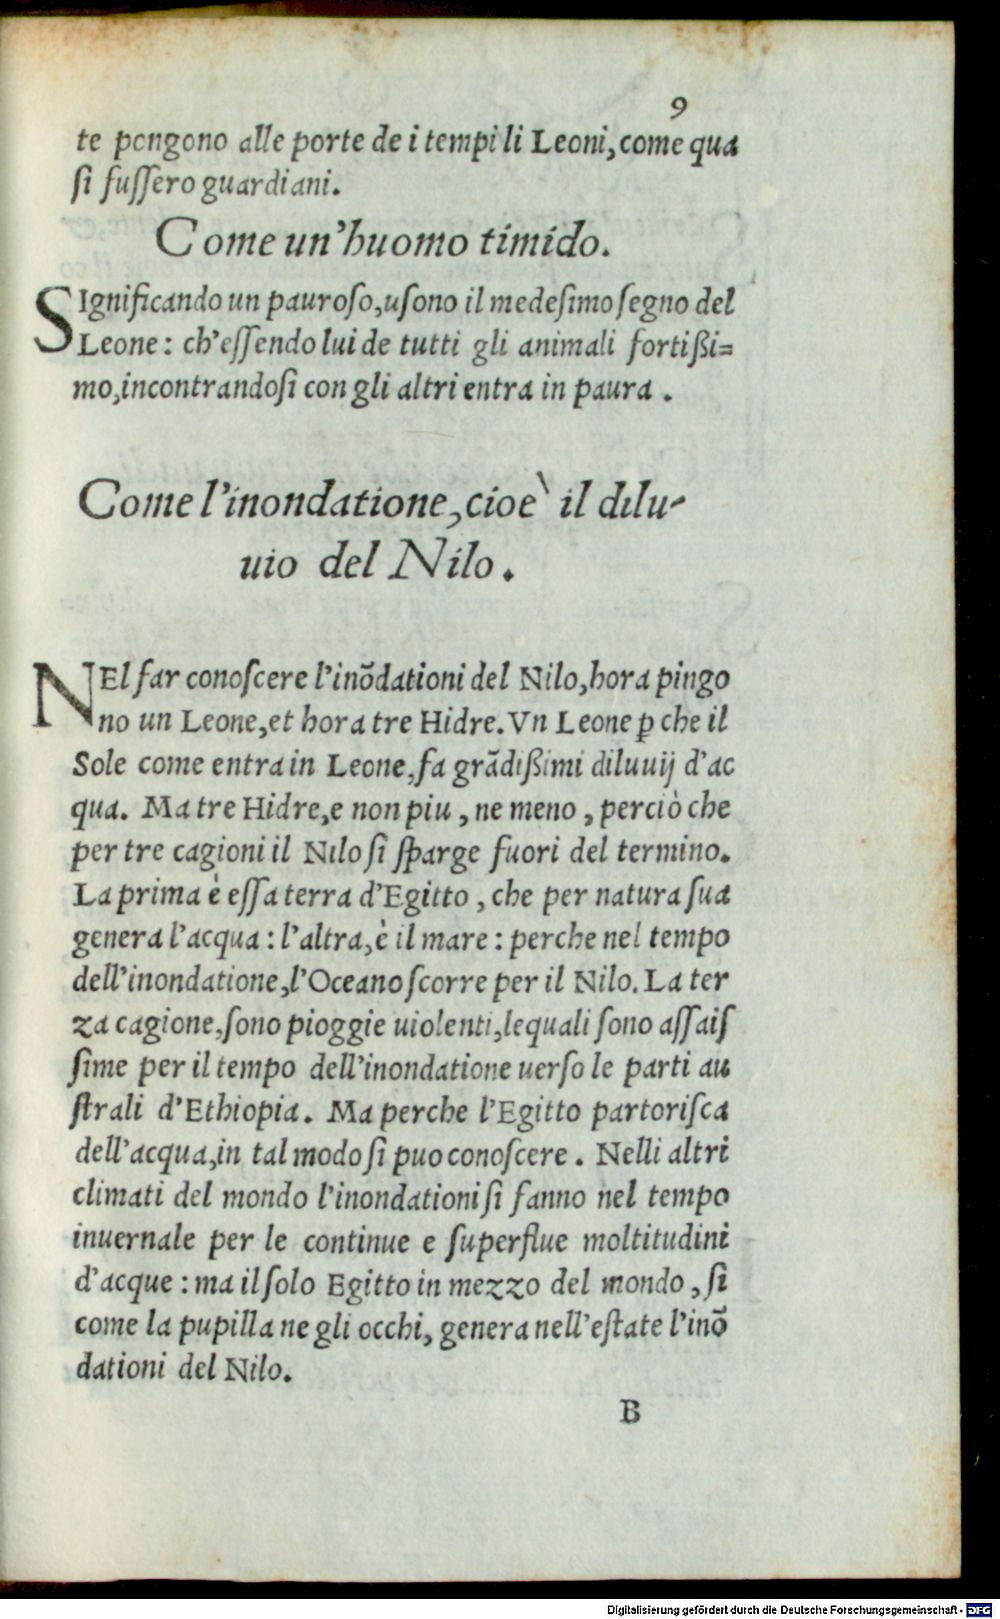 9
te pongono alle porte de i tempi li Leoni, come qua
ſi fuſſero guardiani.
Come un'huomo timido.
SIgnificando un pauroſo, uſono il medeſimo ſegno del
Leone: ch'eſſendo lui de tutti gli animali fortißi=
mo, incontrandoſi con gli altri entra in paura.
Come l'inondatione, cioè il dilu-
uio del Nilo.
NEl far conoſcere l'inõdationi del Nilo, hora pingo
no un Leone, et hora tre Hidre. Vn Leone ꝑ che il
Sole come entra in Leone, fa grãdißimi diluuij d'ac
qua. Ma tre Hidre, e non piu, ne meno, perciò che
per tre cagioni il Nilo ſi ſparge fuori del termino.
La prima è eſſa terra d'Egitto, che per natura ſua
genera l'acqua: l'altra, è il mare: perche nel tempo
dell'inondatione, l'Oceano ſcorre per il Nilo. La ter
za cagione, ſono pioggie uiolenti, lequali ſono aſſaiſ
ſime per il tempo dell'inondatione uerſo le parti au
ſtrali d'Ethiopia. Ma perche l'Egitto partoriſca
dell'acqua, in tal modo ſi puo conoſcere. Nelli altri
climati del mondo l'inondationi ſi fanno nel tempo
inuernale per le continue e ſuperflue moltitudini
d'acque: ma il ſolo Egitto in mezzo del mondo, ſi
come la pupilla ne gli occhi, genera nell'eſtate l'inõ
dationi del Nilo.
B
Digitalisierung gefördert durch die Deutsche Forschungsgemeinschaft - DFG